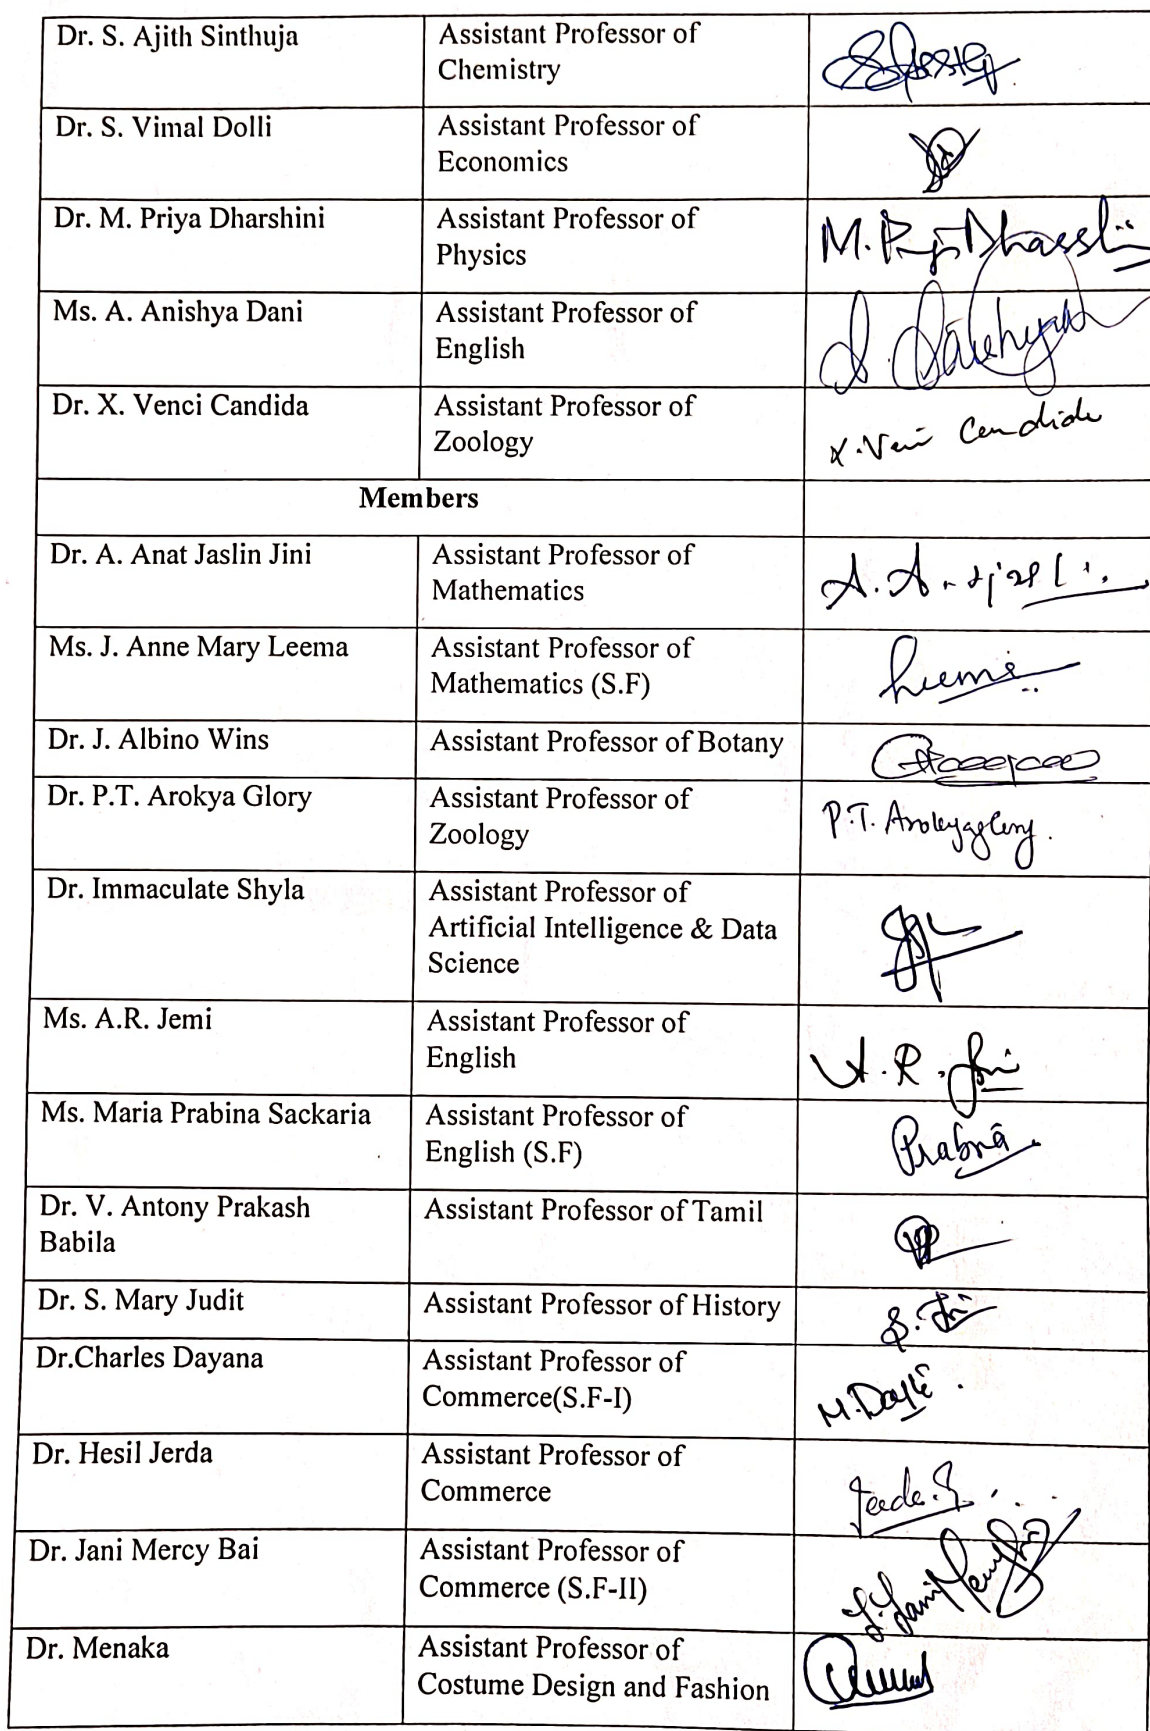 Dr. S. Ajith Sinthuja
Assistant Professor of
Chemistry
Dr. S. Vimal Dolli
Assistant Professor of
Economics
Dr. M. Priya Dharshini
Assistant Professor of
Physics
M. Priya Dharshini
Ms. A. Anishya Dani
Assistant Professor of
English
Dr. X. Venci Candida
Assistant Professor of
Zoology
X. Venci Candida
Members
Dr. A. Anat Jaslin Jini
Assistant Professor of
Mathematics
A. A.
Ms. J. Anne Mary Leema
Assistant Professor of
Mathematics (S.F)
Dr. J. Albino Wins
Assistant Professor of Botany
Dr. P.T. Arokya Glory
Assistant Professor of
Zoology
P.T. Arokyaglory.
Dr. Immaculate Shyla
Assistant Professor of
Artificial Intelligence & Data
Science
Ms. A.R. Jemi
Assistant Professor of
English
A. R. Jemi
Ms. Maria Prabina Sackaria
Assistant Professor of
English (S.F)
Prabina
Dr. V. Antony Prakash
Babila
Assistant Professor of Tamil
Dr. S. Mary Judit
Assistant Professor of History
Dr.Charles Dayana
Assistant Professor of
Commerce(S.F-I)
Dr. Hesil Jerda
Assistant Professor of
Commerce
Dr. Jani Mercy Bai
Assistant Professor of
Commerce (S.F-II)
Dr. Menaka
Assistant Professor of
Costume Design and Fashion